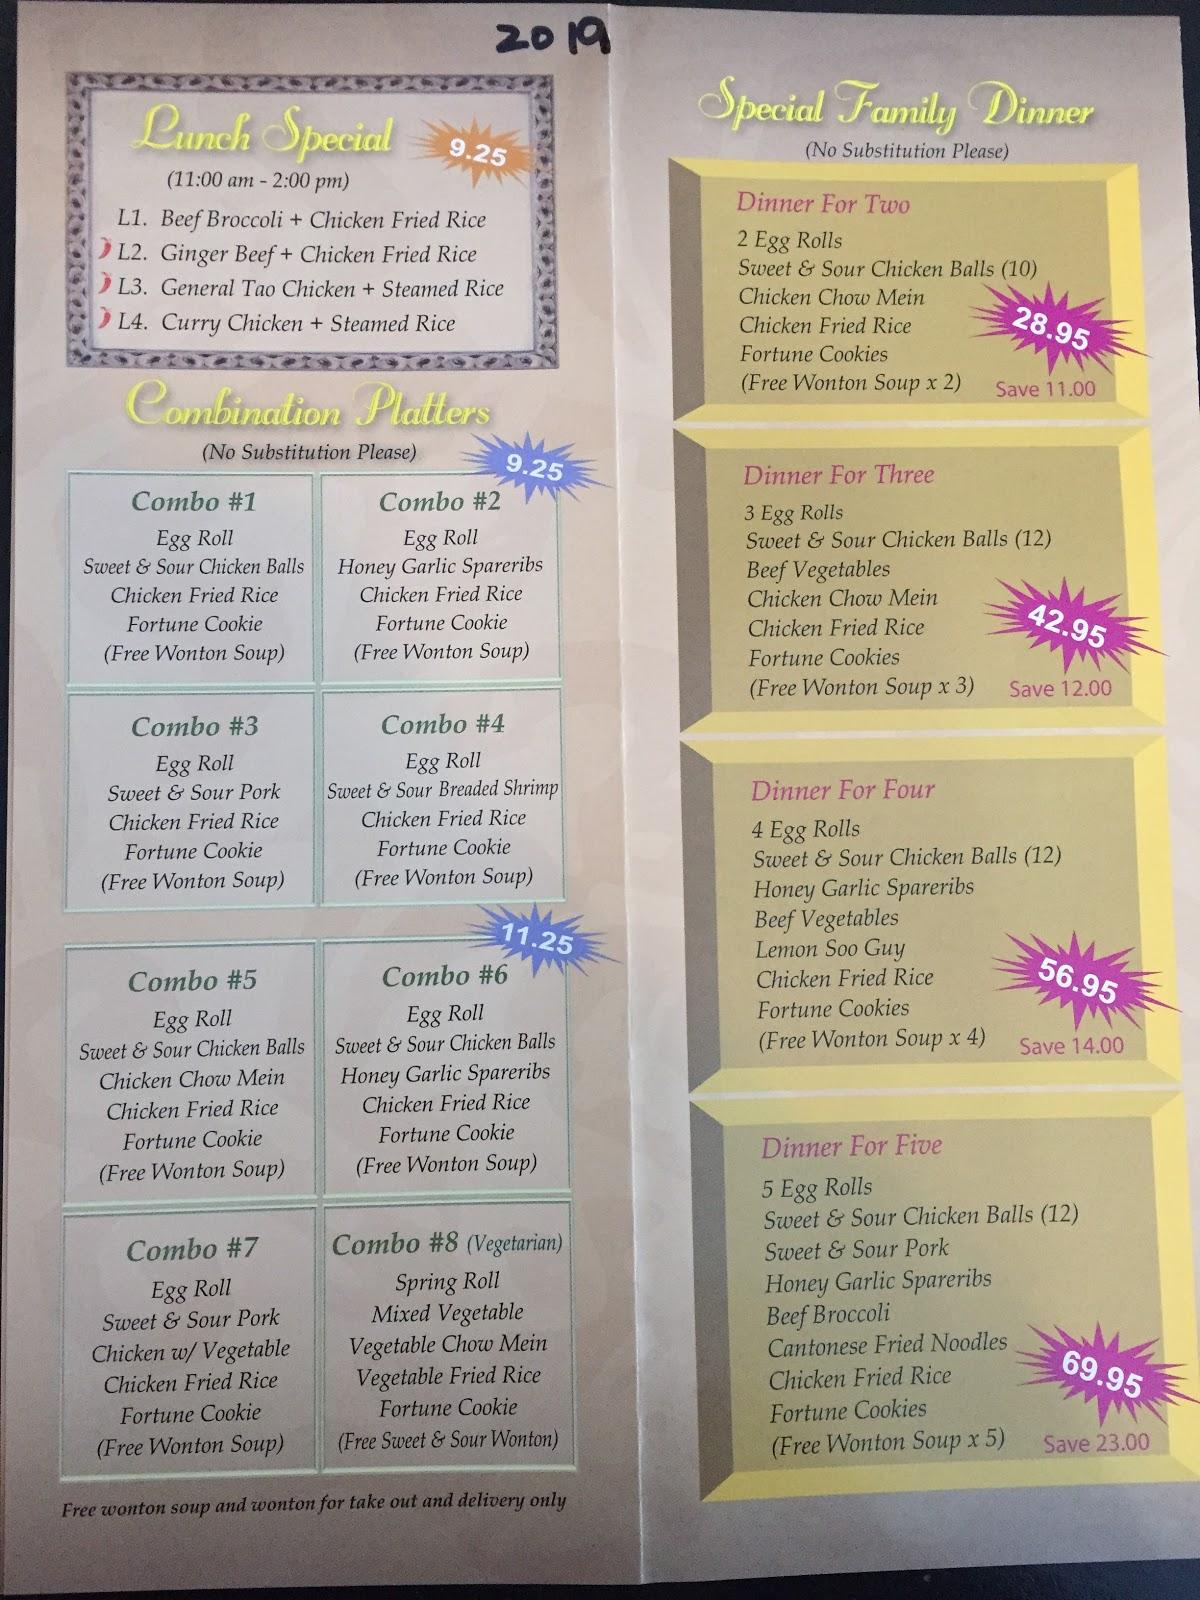 2019
Lunch Special
9.25
(11:00 am - 2:00 pm)
L1. Beef Broccoli + Chicken Fried Rice
L2. Ginger Beef + Chicken Fried Rice
L3. General Tao Chicken + Steamed Rice
L4. Curry Chicken + Steamed Rice
Combination Platters
(No Substitution Please)
9.25
Combo #1
Egg Roll
Sweet & Sour Chicken Balls
Chicken Fried Rice
Fortune Cookie
(Free Wonton Soup)
Combo #2
Egg Roll
Honey Garlic Spareribs
Chicken Fried Rice
Fortune Cookie
(Free Wonton Soup)
Combo #3
Egg Roll
Sweet & Sour Pork
Chicken Fried Rice
Fortune Cookie
(Free Wonton Soup)
Combo #4
Egg Roll
Sweet & Sour Breaded Shrimp
Chicken Fried Rice
Fortune Cookie
(Free Wonton Soup)
11.25
Combo #5
Egg Roll
Sweet & Sour Chicken Balls
Chicken Chow Mein
Chicken Fried Rice
Fortune Cookie
(Free Wonton Soup)
Combo #6
Egg Roll
Sweet & Sour Chicken Balls
Honey Garlic Spareribs
Chicken Fried Rice
Fortune Cookie
(Free Wonton Soup)
Combo #7
Egg Roll
Sweet & Sour Pork
Chicken w/ Vegetable
Chicken Fried Rice
Fortune Cookie
(Free Wonton Soup)
Combo #8 (Vegetarian)
Spring Roll
Mixed Vegetable
Vegetable Chow Mein
Vegetable Fried Rice
Fortune Cookie
(Free Sweet & Sour Wonton)
Free wonton soup and wonton for take out and delivery only
Special Family Dinner
(No Substitution Please)
Dinner For Two
2 Egg Rolls
Sweet & Sour Chicken Balls (10)
Chicken Chow Mein
Chicken Fried Rice
Fortune Cookies
(Free Wonton Soup x 2)
28.95
Save 11.00
Dinner For Three
3 Egg Rolls
Sweet & Sour Chicken Balls (12)
Beef Vegetables
Chicken Chow Mein
Chicken Fried Rice
Fortune Cookies
(Free Wonton Soup x 3)
42.95
Save 12.00
Dinner For Four
4 Egg Rolls
Sweet & Sour Chicken Balls (12)
Honey Garlic Spareribs
Beef Vegetables
Lemon Soo Guy
Chicken Fried Rice
Fortune Cookies
(Free Wonton Soup x 4)
56.95
Save 14.00
Dinner For Five
5 Egg Rolls
Sweet & Sour Chicken Balls (12)
Sweet & Sour Pork
Honey Garlic Spareribs
Beef Broccoli
Cantonese Fried Noodles
Chicken Fried Rice
Fortune Cookies
(Free Wonton Soup x 5)
69.95
Save 23.00